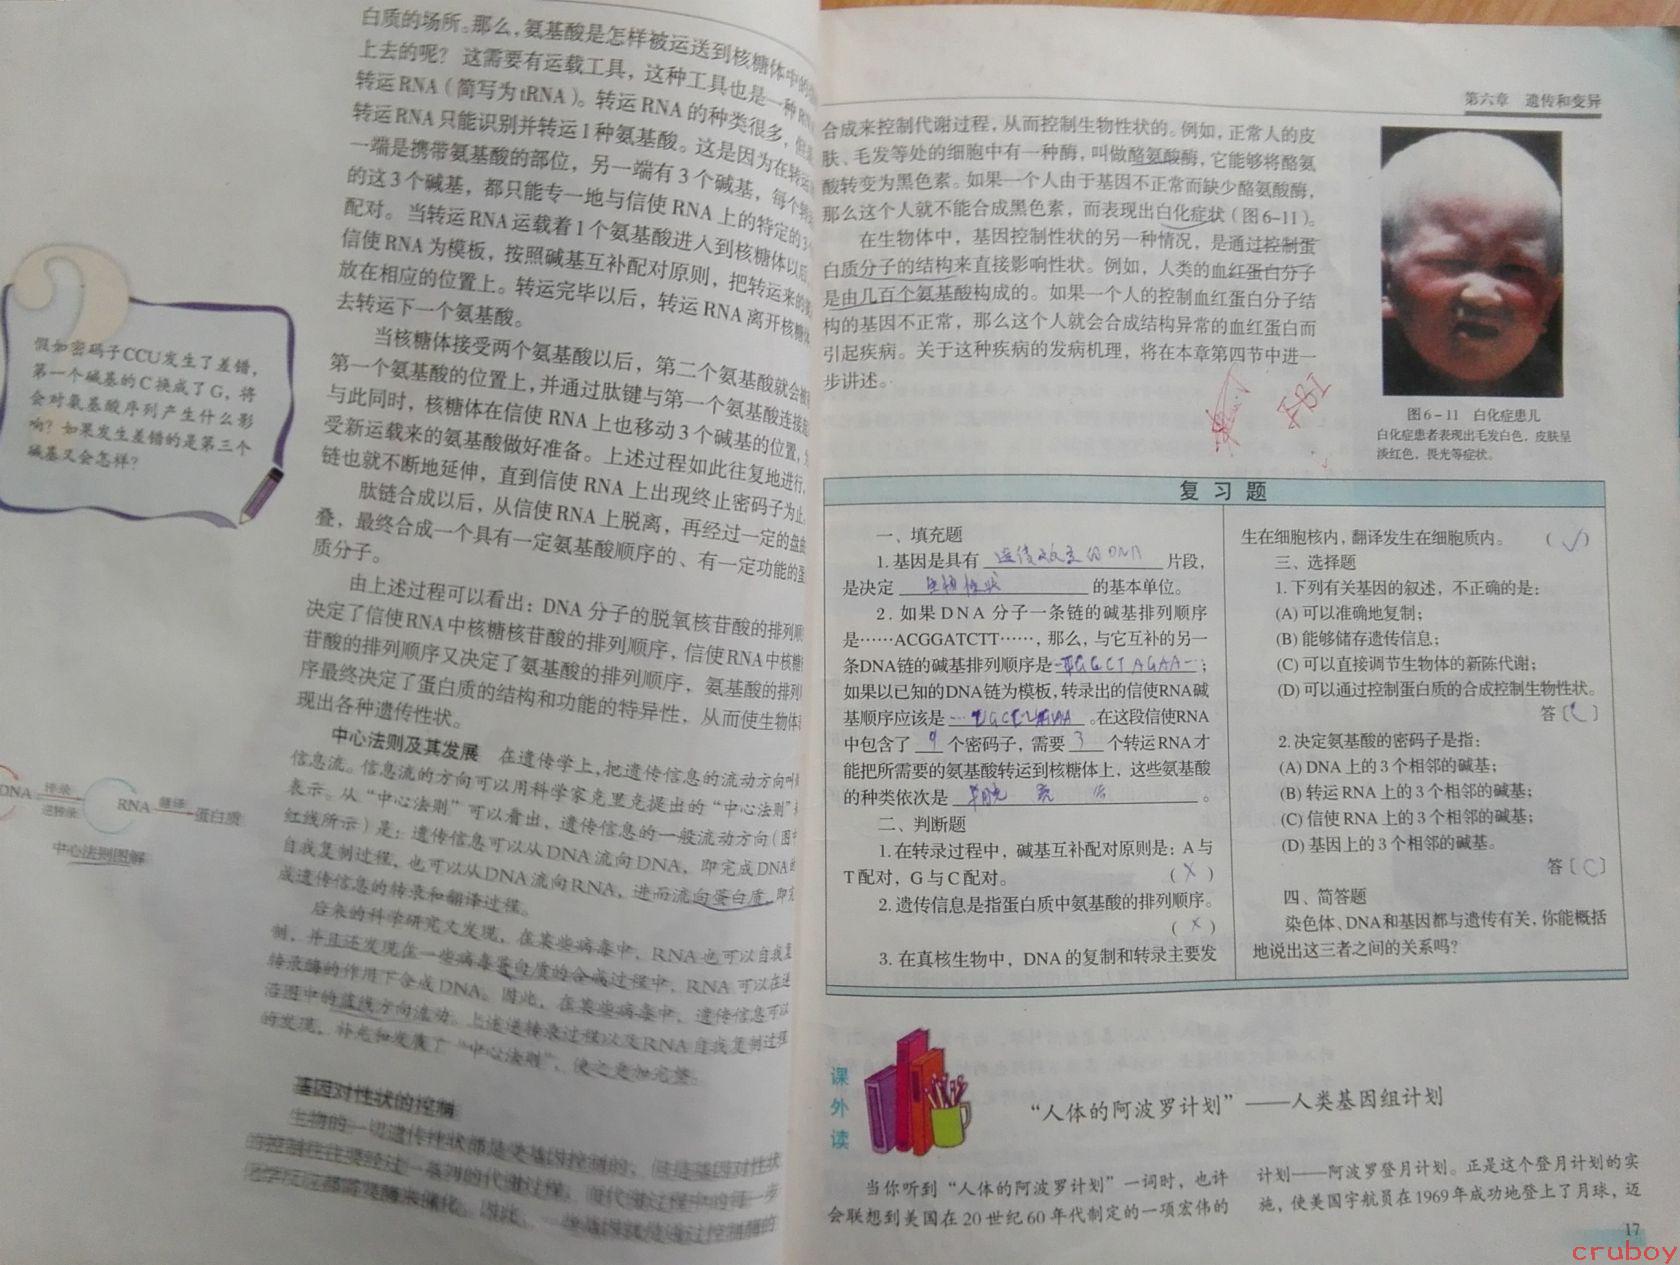 白质的场所。那么,氨基酸是怎样被运送到核糖体中的
上去的呢?这需要有运载工具,这种工具也是一种RN
转运RNA(简写为tRNA)。转运RNA的种类很多,但
转运RNA只能识别并转运1种氨基酸。这是因为在转运
一端是携带氨基酸的部位,另一端有3个碱基,每个转
的这3个碱基,都只能专一地与信使RNA上的特定的3
配对。当转运RNA运载着1个氨基酸进入到核糖体以后
信使RNA为模板,按照碱基互补配对原则,把转运来的
放在相应的位置上。转运完毕以后,转运RNA离开核糖
去转运下一个氨基酸。
当核糖体接受两个氨基酸以后,第二个氨基酸就会
第一个氨基酸的位置上,并通过肽键与第一个氨基酸连接
与此同时,核糖体在信使RNA上也移动3个碱基的位置,
受新运载来的氨基酸做好准备。上述过程如此往复地进行,
链也就不断地延伸,直到信使RNA上出现终止密码子为止。
肽链合成以后,从信使RNA上脱离,再经过一定的盘
叠,最终合成一个具有一定氨基酸顺序的、有一定功能的蛋
质分子。
由上述过程可以看出:DNA分子的脱氧核苷酸的排列
决定了信使RNA中核糖核苷酸的排列顺序,信使RNA中核糖
苷酸的排列顺序又决定了氨基酸的排列顺序,氨基酸的排列
序最终决定了蛋白质的结构和功能的特异性,从而使生物体
现出各种遗传性状。
中心法则及其发展 在遗传学上,把遗传信息的流动方向叫
信息流。信息流的方向可以用科学家克里克提出的“中心法则”
表示。从“中心法则”可以看出,遗传信息的一般流动方向(图
红线所示)是:遗传信息可以从DNA流向DNA,即完成DNA
自我复制过程,也可以从DNA流向RNA,进而流向蛋白质,即
成遗传信息的转录和翻译过程。
后来的科学研究又发现,在某些病毒中,RNA也可以自我复
制,并且还发现在一些病毒蛋白质的合成过程中,RNA可以在逆
转录酶的作用下合成DNA。因此,在某些病毒中,遗传信息可以
沿图中的蓝线方向流动。上述逆转录过程以及RNA自我复制过程
的发现,补充和发展了“中心法则”,使之更加完整。
基因对性状的控制
生物的一切遗传性状都是受基因控制的,但是基因对性状
的控制往往要经过一系列的代谢过程,而代谢过程中的每一步
化学反应都需要酶来催化。因此,一些基因就是通过控制酶的
假如密码子CCU发生了差错,
第一个碱基的C换成了G,将
会对氨基酸序列产生什么影
响?如果发生差错的是第三个
碱基又会怎样?
DNA 转录 逆转录 RNA 翻译 蛋白质
中心法则图解
第六章 遗传和变异
合成来控制代谢过程,从而控制生物性状的。例如,正常人的皮
肤、毛发等处的细胞中有一种酶,叫做酪氨酸酶,它能够将酪氨
酸转变为黑色素。如果一个人由于基因不正常而缺少酪氨酸酶,
那么这个人就不能合成黑色素,而表现出白化症状(图6-11)。
在生物体中,基因控制性状的另一种情况,是通过控制蛋
白质分子的结构来直接影响性状。例如,人类的血红蛋白分子
是由几百个氨基酸构成的。如果一个人的控制血红蛋白分子结
构的基因不正常,那么这个人就会合成结构异常的血红蛋白而
引起疾病。关于这种疾病的发病机理,将在本章第四节中进一
步讲述。
图6-11 白化症患儿
白化症患者表现出毛发白色,皮肤呈
淡红色,畏光等症状。
复习题
一、填充题
1.基因是具有 遗传效应的DNA 片段,
是决定 生物性状 的基本单位。
2.如果DNA分子一条链的碱基排列顺序
是……ACGGATCTT……,那么,与它互补的另一
条DNA链的碱基排列顺序是 TGCCTAGAA ;
如果以已知的DNA链为模板,转录出的信使RNA碱
基顺序应该是 …UGCCUAGAA 。在这段信使RNA
中包含了 9 个密码子,需要 3 个转运RNA才
能把所需要的氨基酸转运到核糖体上,这些氨基酸
的种类依次是 。
二、判断题
1.在转录过程中,碱基互补配对原则是:A与
T配对,G与C配对。 (×)
2.遗传信息是指蛋白质中氨基酸的排列顺序。
(×)
3.在真核生物中,DNA的复制和转录主要发
生在细胞核内,翻译发生在细胞质内。 (√)
三、选择题
1.下列有关基因的叙述,不正确的是:
(A)可以准确地复制;
(B)能够储存遗传信息;
(C)可以直接调节生物体的新陈代谢;
(D)可以通过控制蛋白质的合成控制生物性状。
答〔C〕
2.决定氨基酸的密码子是指:
(A)DNA上的3个相邻的碱基;
(B)转运RNA上的3个相邻的碱基;
(C)信使RNA上的3个相邻的碱基;
(D)基因上的3个相邻的碱基。
答〔C〕
四、简答题
染色体、DNA和基因都与遗传有关,你能概括
地说出这三者之间的关系吗?
课外读
“人体的阿波罗计划”——人类基因组计划
当你听到“人体的阿波罗计划”一词时,也许
会联想到美国在20世纪60年代制定的一项宏伟的
计划——阿波罗登月计划。正是这个登月计划的实
施,使美国宇航员在1969年成功地登上了月球,迈
17
cruboy